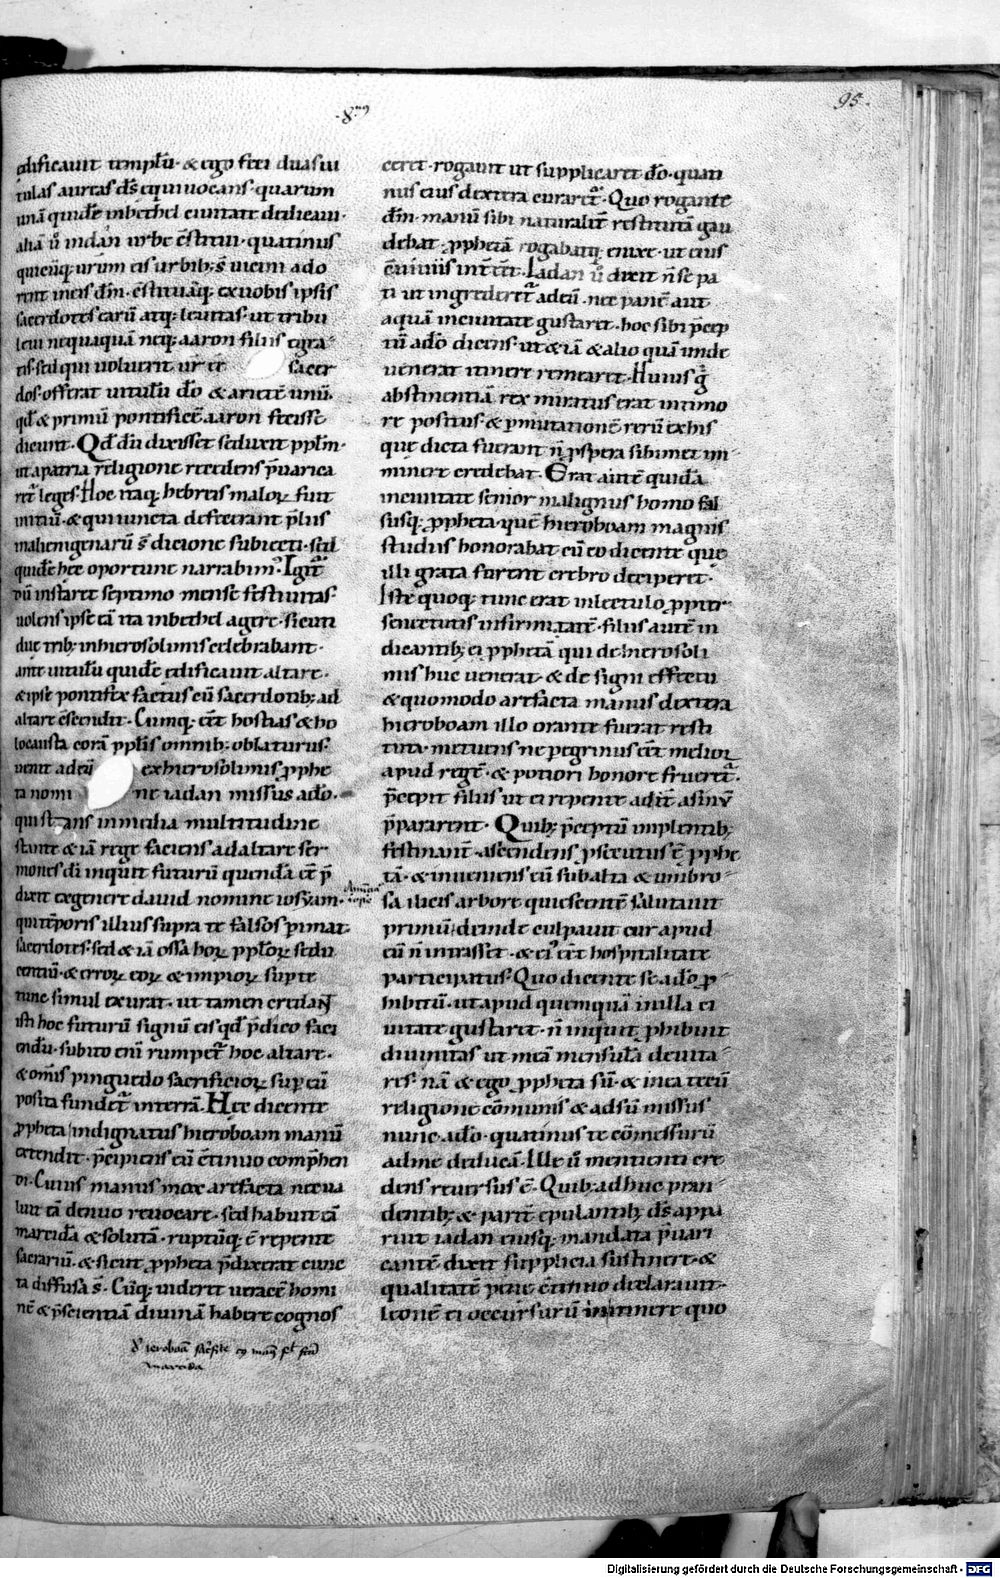 .8.us
95.
ędificauit templū· & ego feci duas ui
tulas aureas d̄s equiuocans· quarum
unā quidē inbethel ciuitate dedicaui·
aliā ū indan urbe c̄stitui· quatinus
quicūq; urūm eis urbib; s̄ uicini ado
rent ineis dm̄· c̄stituāq; exuobis ipsis
sacerdotes earū atq; leuitas· ut tribu
leui nequaquā neq; aaron filiis egea
tis· sed qui uoluerit sacer
dos· offerat uitulū dō & arietē unū·
qd̄ & primū pontificē aaron fecisse
dicunt· Qd̄ dū dixisset seduxit pplm̄·
ut apatria religione recedens p̄uarica
retᷣ leges· Hoc itaq; hebreis maloꝝ fuit
initiū· & qui iuncta defecerant p̄lus
malienigenarū s̄ dicione subiecti· sed
quidē hęc oportune narrabim᷒· Igit᷑
cū instaret septimo mense festiuitas·
uolens ipse eā ita inbethel agere· sicuti
duę trib; inhierosolimis celebrabant·
ante uitulū quidē ędificauit altare·
& ipse pontifex factus cū sacerdotib; ad
altare c̄scendit· Cumq; eēt hostias & ho
locausta corā pplis omnib; oblaturus·
uenit adeū exhierosolimis ꝓphe
ta nomi ne iadan missus adō·
qui stans inmedia multitudine
stante & iā rege faciens adaltare ser
mones dī inquit futurū quendā eēt p̄
dixit exgenere dauid nomine iosyam·
qui tēporis illius supra te falsos p̄imat·
sacerdotes· sed & iā ossa hoꝝ pploꝝ sedu
centiū· & erroꝝ eoꝝ & impioꝝ sup te
tunc simul exurat· ut tamen credant
isti hoc futurū signū eis qd̄ p̄dico faci
endū· subito eni rumpet᷑ hoc altare·
& om̄is pinguedo sacrificioꝝ sup eū
posita fundet᷑ interrā· Hęc dicente
ꝓpheta indignatus hieroboam manū
extendit· p̄cipiens eū c̄tinuo comp̄hen
di· Cuius manus mox arefacta neeua
luit eā denuo reuocare· sed habuit eā
marcidā & solutā· ruptūq; ē repente
sacrariū· & sicut ꝓpheta p̄dixerat cunc
ta diffusa s̄· Cūq; uideret ueracē homi
nē & p̄scientiā diuinā habere cognos
ceret· rogauit ut supplicaret dō· quati
nus eius dextera curaret᷑· Quo rogante
dm̄· manū sibi naturalit̄ restitutā gau
debat· ꝓphetā rogabatq; enixe· ut eius
c̄uiuiis int̄eēt· Iadan ū dixit n̄ se pa
ti ut ingrederet᷑ adeū· nec panē aut
aquā inciuitate gustaret· hoc sibi p̄cep
tū adō dicens· ut & iā & alio quā unde
uenerat itinere remearet· Huius g̃
abstinentiā rex miratus erat intimo
re positus· & ꝑmutationē rerū exhis
que dicta fuerant n̄ ꝓspera sibimet im
minere credebat· Erat autē quidā
inciuitate senior malignus homo fal
susq; ꝓpheta· quē hieroboam magnis
studiis honorabat eū eo dicente quę
illi grata forent crebro deciperet·
Iste quoq; tunc erat inlectulo ꝓpter
senectutis infirmitatē· filiis autē in
dicantib; ei ꝓphetā qui dehierosoli
mis huc uenerat· & de signi effectu
& quomodo arefacta manus dextera
hieroboam illo orante fuerat resti
tuta· metuens ne peregrinus eēt melior
apud regē· & potiori honore frueret᷑·
p̄cepit filiis ut ei repente adire asinū
p̄pararent· Quib; p̄ceptū implentib;
festinant̄· ascendens ꝓsecutus ē ꝓphe
tā· & inueniens eū subalta & umbro
sa ilicis arbore quiescentē salutauit
primū· deinde culpauit cur apud
eū n̄ intrasset· & ei᷒ eēt hospitalitate
participatus· Quo dicente se adō ꝓ
hibitū· ut apud quemquā inilla ci
uitate gustaret· n̄ inquit ꝓhibuit
diuinitas ut meā mensulā deuita
res· nā & ego ꝓpheta sū· & mea tecū
religione cōmunis & adsū missus
nunc adō· quatinus te cōmessurū
adme deducā· Ille ū mentienti cre
dens reuersus ē· Quib; adhuc pran
dentib; & parit̄ epulantib; d̄s appa
ruit iadan eiusq; mandata p̄uari
cantē dixit supplicia sustinere· &
qualitatē penę c̄tinuo declarauit·
leonē ei occursurū initinere quo
marcida
Digitalisierung gefördert durch die Deutsche Forschungsgemeinschaft - DFG